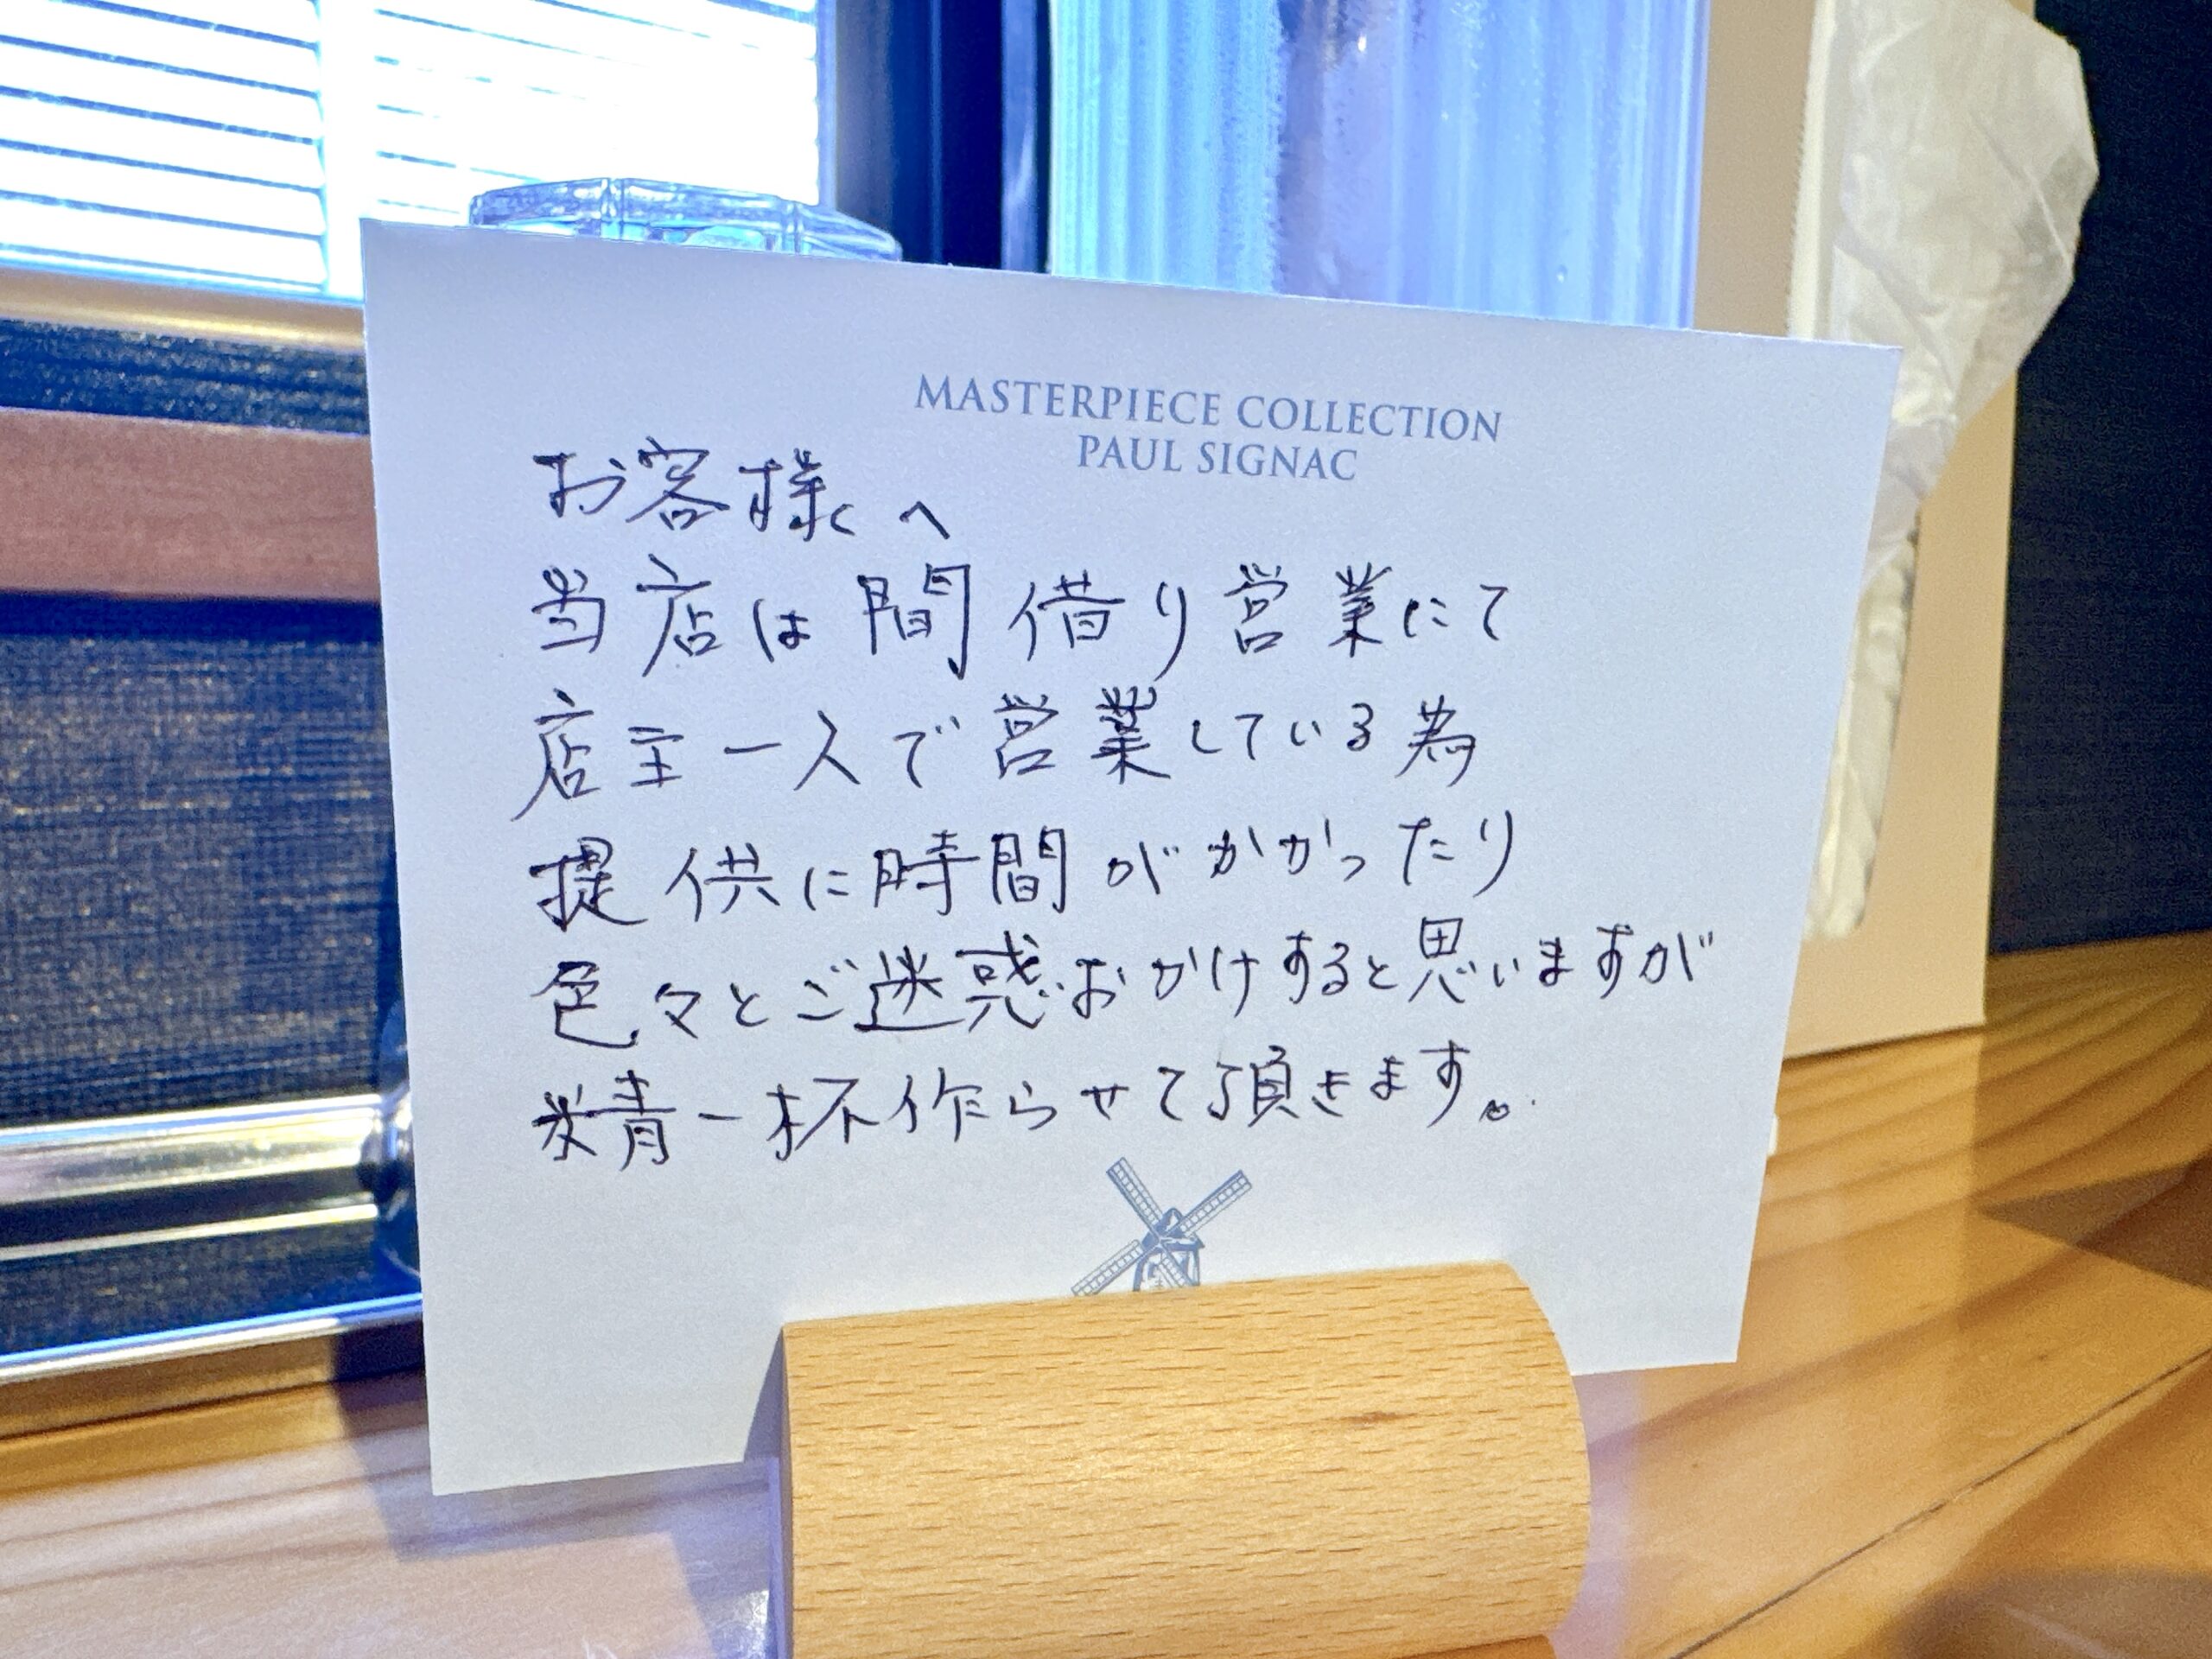 MASTERPIECE COLLECTION
PAUL SIGNAC
お客様へ
当店は間借り営業にて
店主一人で営業している為
提供に時間がかかったり
色々とご迷惑おかけすると思いますが
精一杯作らせて頂きます。